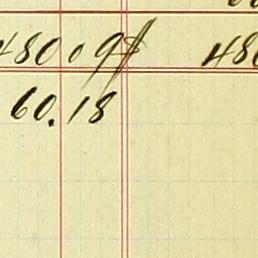 480.09 48
60.18